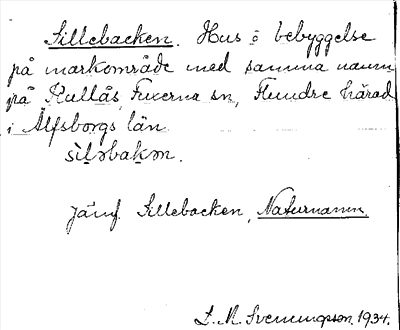 Sillebacken. Hus o bebyggelse
på markområde med samma namn
på Kullås, Fuxerna sn, Flundre härad
i Älfsborgs län.
sìləbakən.
jämf. Sillebacken, Naturnamn.
L. M. Svenungsson. 1934.